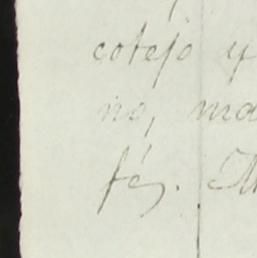 cotejo y
no, ma
fé.